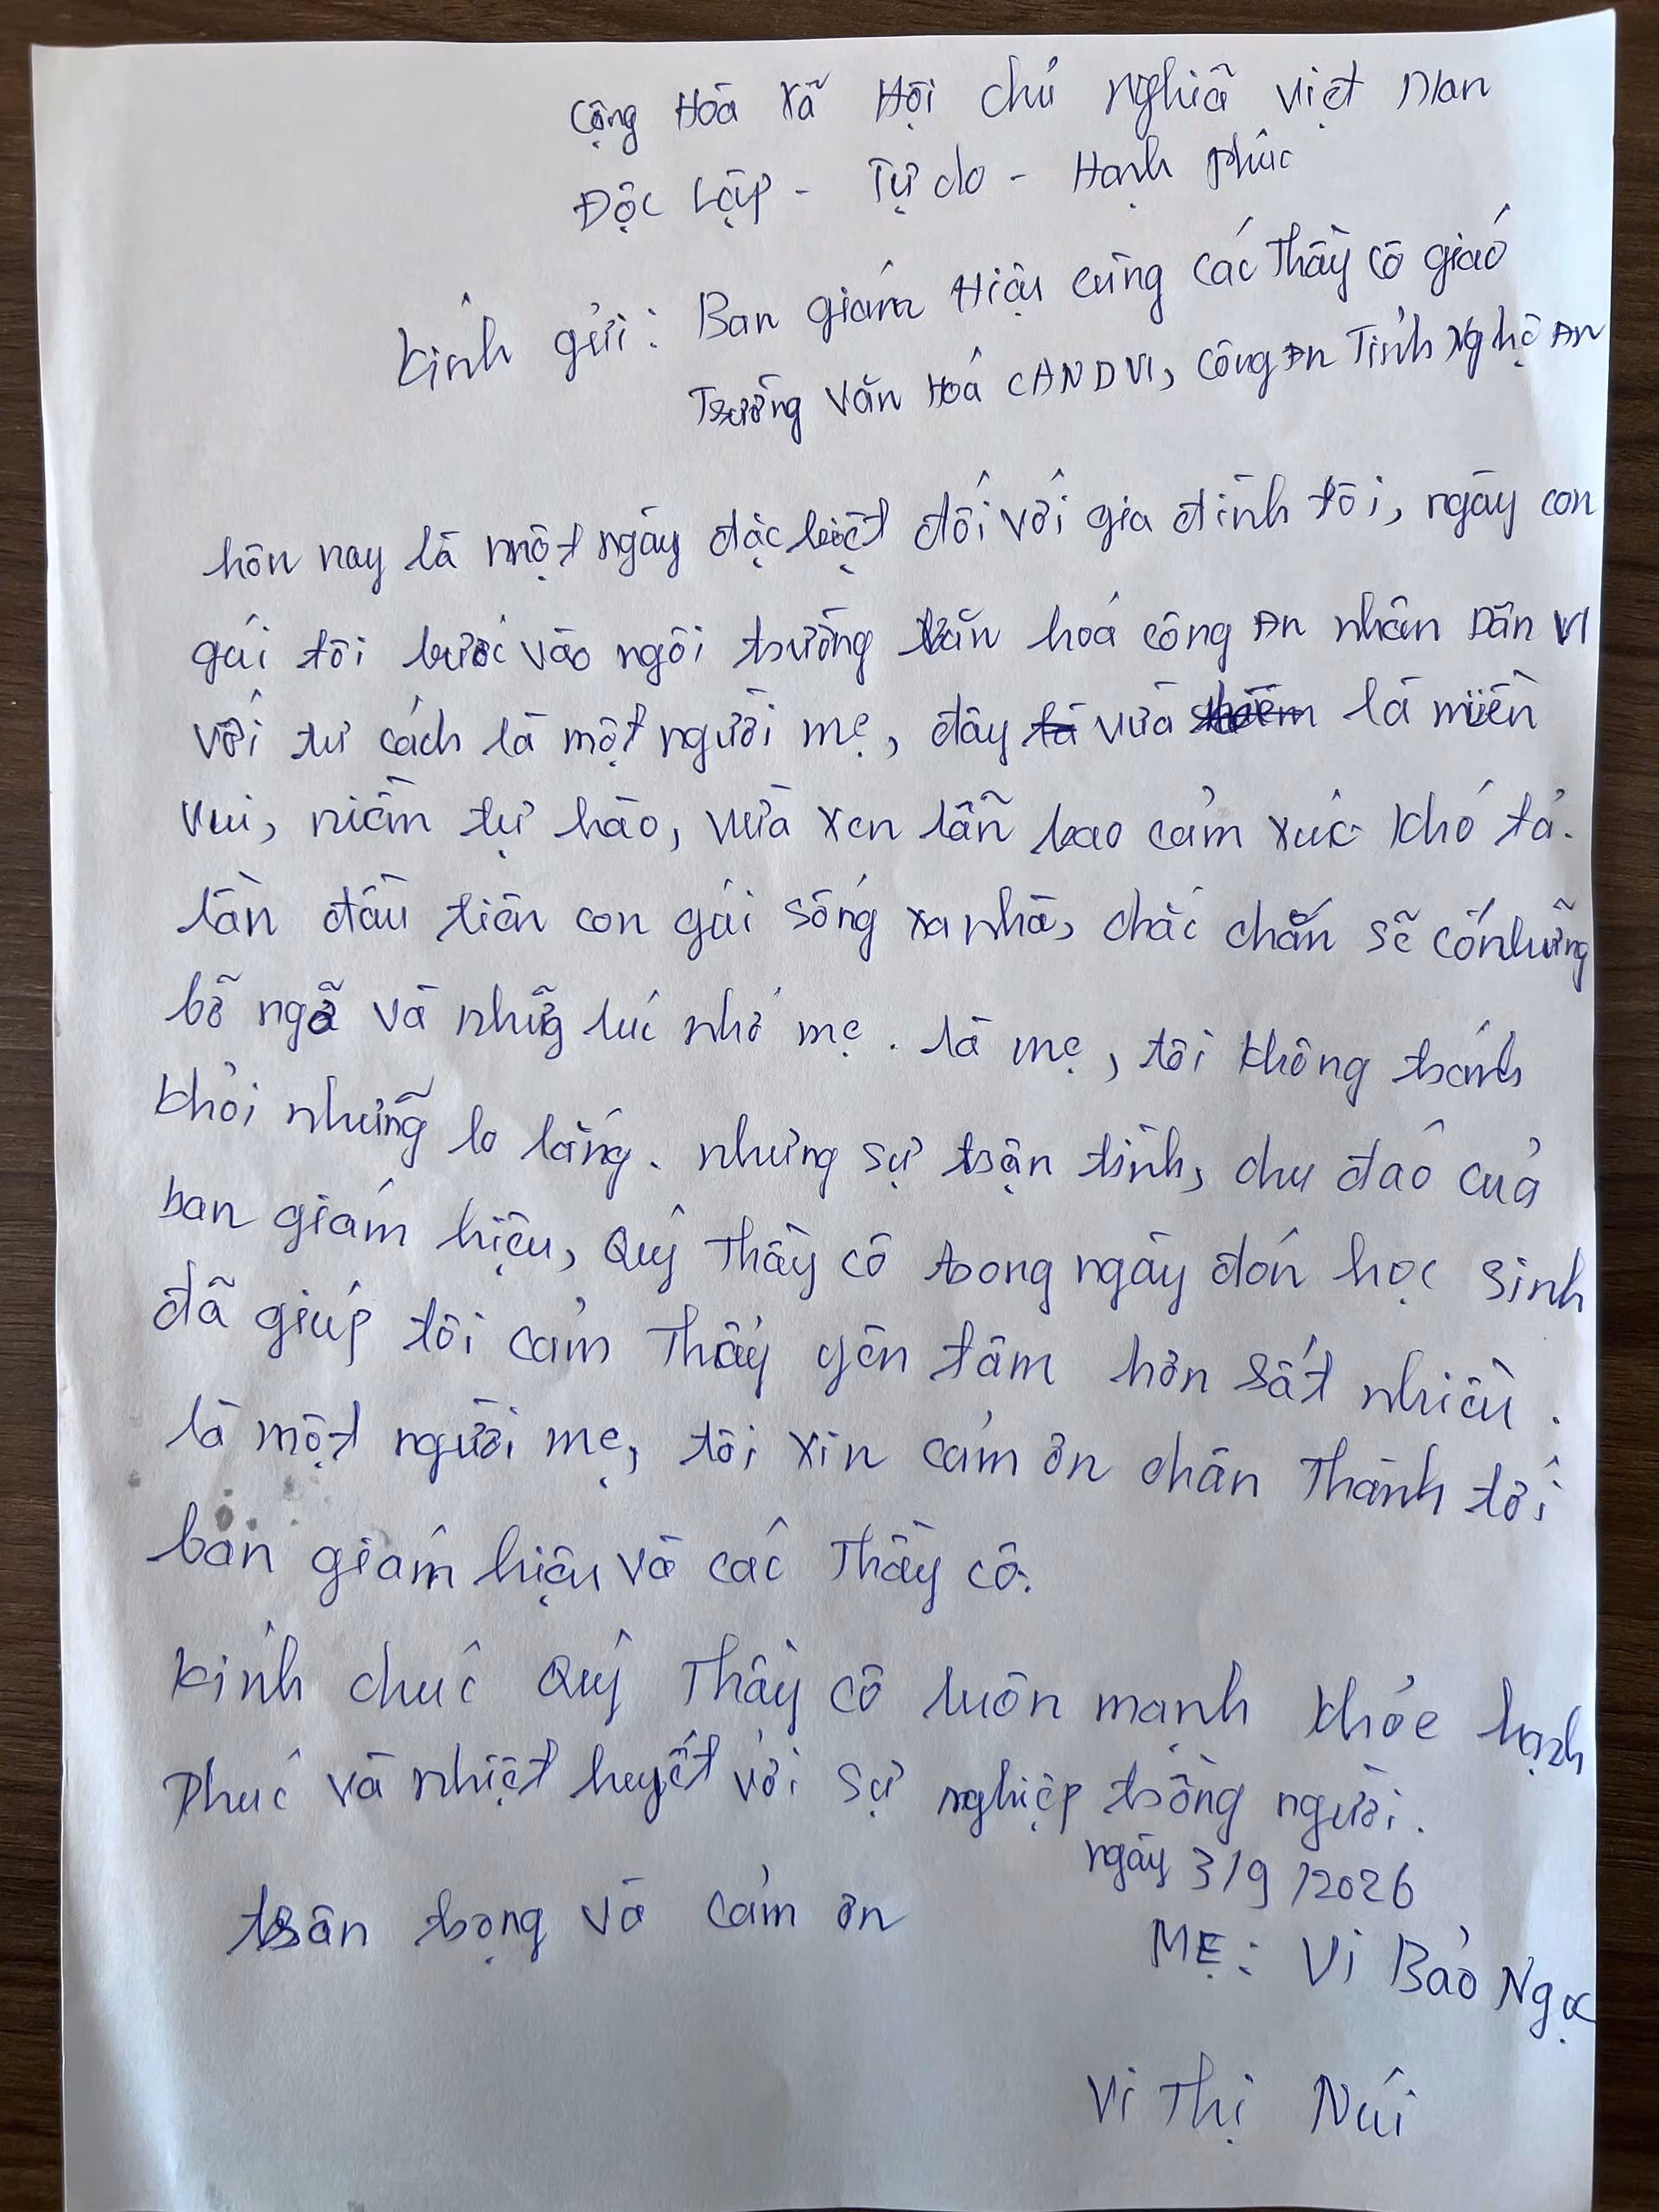 Cộng Hòa Xã Hội chủ Nghiã việt Nan
Độc Lập - Tự do - Hạnh phúc
Kính gửi: Ban giám Hiệu cùng các Thầy cô giáo
Trường Văn Hoá CAND VI, Công An Tỉnh Nghệ An
hôn nay là một ngày đặc biệt đối với gia đình tôi, ngày con
gái tôi bước vào ngôi trường văn hoá công An nhân Dân VI
với tư cách là một người mẹ, đây vừa là miền
vui, niềm tự hào, vừa xen lẫn bao cảm xúc khó tả.
lần đầu tiên con gái sống xa nhà, chắc chắn sẽ có những
bỡ ngỡ và những lúc nhớ mẹ. là mẹ, tôi không tránh
khỏi những lo lắng. nhưng sự trận tình, chu đáo của
ban giám hiệu, Quý Thầy cô trong ngày đón học sinh
đã giúp tôi cảm Thấy yên tâm hơn rất nhiều.
là một người mẹ, tôi xin cảm ơn chân Thành tới
ban giám hiệu và các Thầy cô.
Kính chúc Quý Thầy cô luôn mạnh khỏe hạnh
Phúc và nhiệt huyết với sự nghiệp trồng người.
ngày 3/9/2026
trân trọng và cảm ơn
MẸ: Vi Bảo Ngọc
Vi Thị Núi